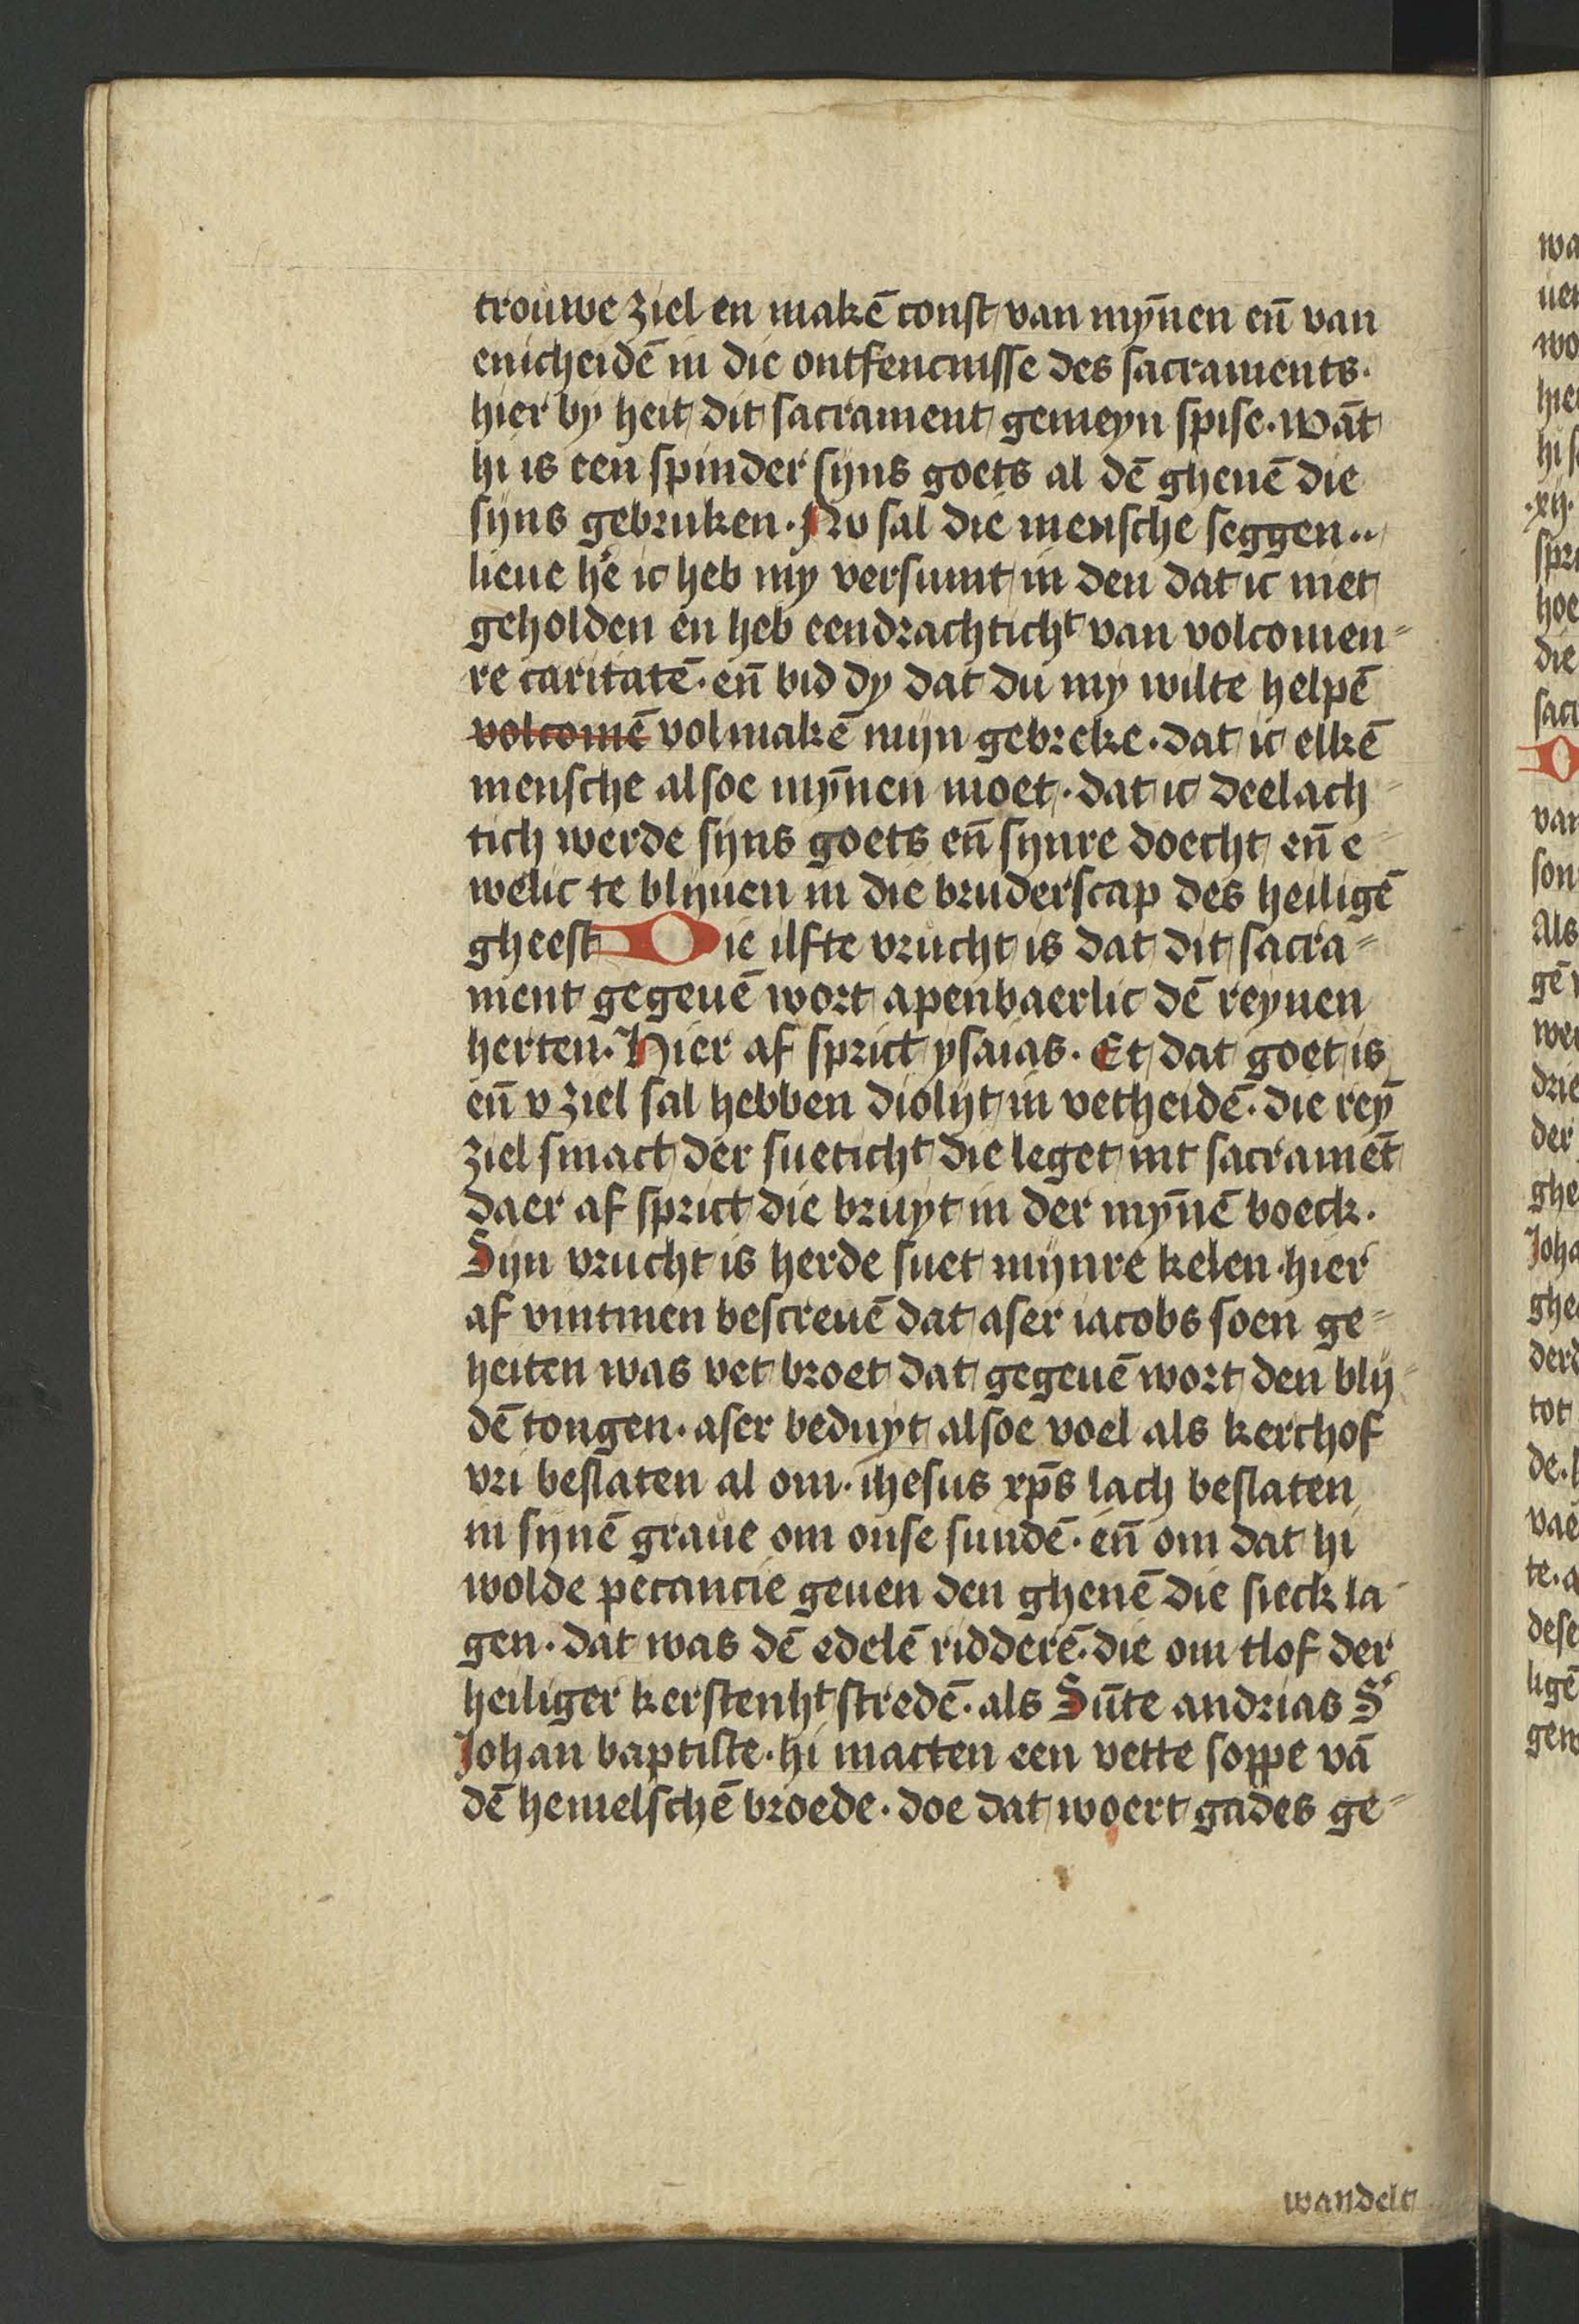 trouwe ziel en makē const van mȳnen en̄ van
enicheidē in die ontfencnisse des sacraments.
hier by heit dit sacrament gemeyn spise. wāt
hi is een spinder sijns goets al dē ghenē die
sijns gebruken. Nv sal die mensche seggen..
lieue h'e ic heb my versumt in den dat ic niet
geholden en heb eendrachticht van volcomen=
re caritatē. en̄ bid dy dat du my wilte helpē
volcomē volmakē mijn gebreke. dat ic elkē
mensche alsoe mȳnen moet. dat ic deelach-
tich werde sijns goets en̄ synre doecht en̄ e-
welic te blijuen in die bruderscap des heiligē
gheest Die ilfte vrucht is dat dit sacra=
ment gegeuē wort apenbaerlic dē reynen
herten. Hier af sprict ysaias. Et dat goet is
en̄ v ziel sal hebben diolijt in vetheidē. die reȳ
ziel smact der sueticht die leget int sacramēt
daer af sprict die bruyt in der mȳnē boeck.
Sijn vrucht is herde suet mijnre kelen. hier
af vintmen bescreuē dat aser iacobs soen ge=
heiten was vet broet dat gegeuē wort den blij-
dē tongen. aser beduyt alsoe voel als kerchof
vri beslaten al om. ihesus xp̄s lach beslaten
in synē graue om onse sundē. en̄ om dat hi
wolde petancie geuen den ghenē die sieck la-
gen. dat was dē edelē ridderē. die om tlof der
heiliger kerstenht stredē. als Sūte andrias S'
Johan baptiste. hi macten een vette soppe vā
dē hemelschē broede. doe dat woert gades ge=
wandelt
wa
uen
wo
hier
hi s
.xij.
spri
hoe
die
sacr
D
van
son
Als
gē
wer
drie
der
ghe
Joha
ghe
derd
tot
de.
vae
te. a
dese
ligē
gen